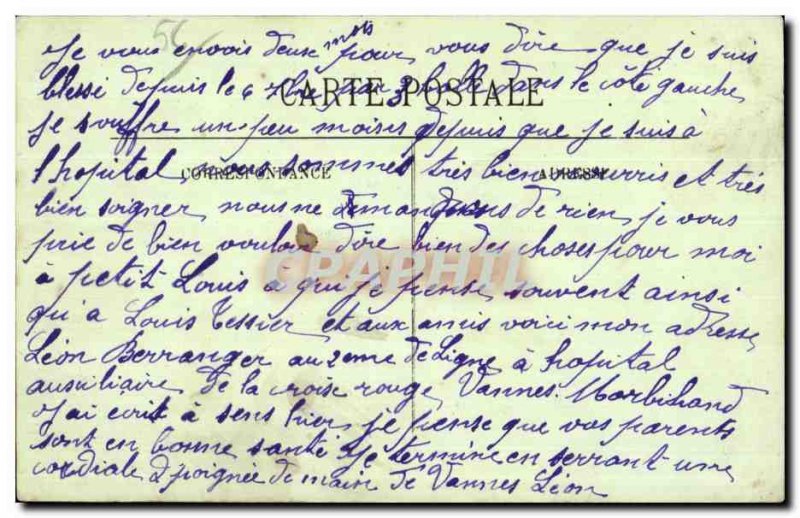 54
Je vous envois deux mots pour vous dire que je suis
blessi depuis le 6 7bre par balle dans le côte gauche
CARTE POSTALE
je souffre un peu moins depuis que je suis à
l'hopital nous sommes très bien nourris et très
CORRESPONDANCE ADRESSE
bien soigner nous ne manquons de rien, je vous
prie de bien vouloir dire bien des choses pour moi
à petit Louis à qui je pense souvent ainsi
CPAPHIL
qu'a Louis Tessier et aux amis voici mon adresse
Léon Berranger au 2eme de Ligne à hopital
auxiliaire de la croix rouge Vannes Morbihand
J'ai écrit à sens hier, je pense que vos parents
sont en bonne santé. Je termine en serrant une
cordiale poignée de main de Vannes Léon